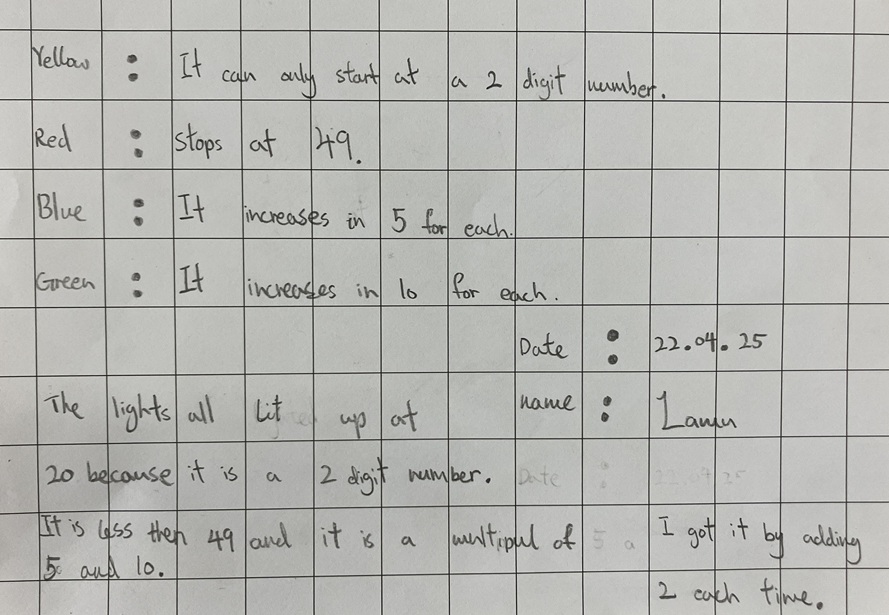 Yellow : It can only start at a 2 digit number.
Red : stops at 49.
Blue : It increases in 5 for each.
Green : It increases in 10 for each.
Date : 22.04.25
name :
The lights all lit up at
20 because it is a 2 digit number.
Date :
It is less then 49 and it is a multipul of 5 a
5 and 10.
I got it by adding
2 each time.